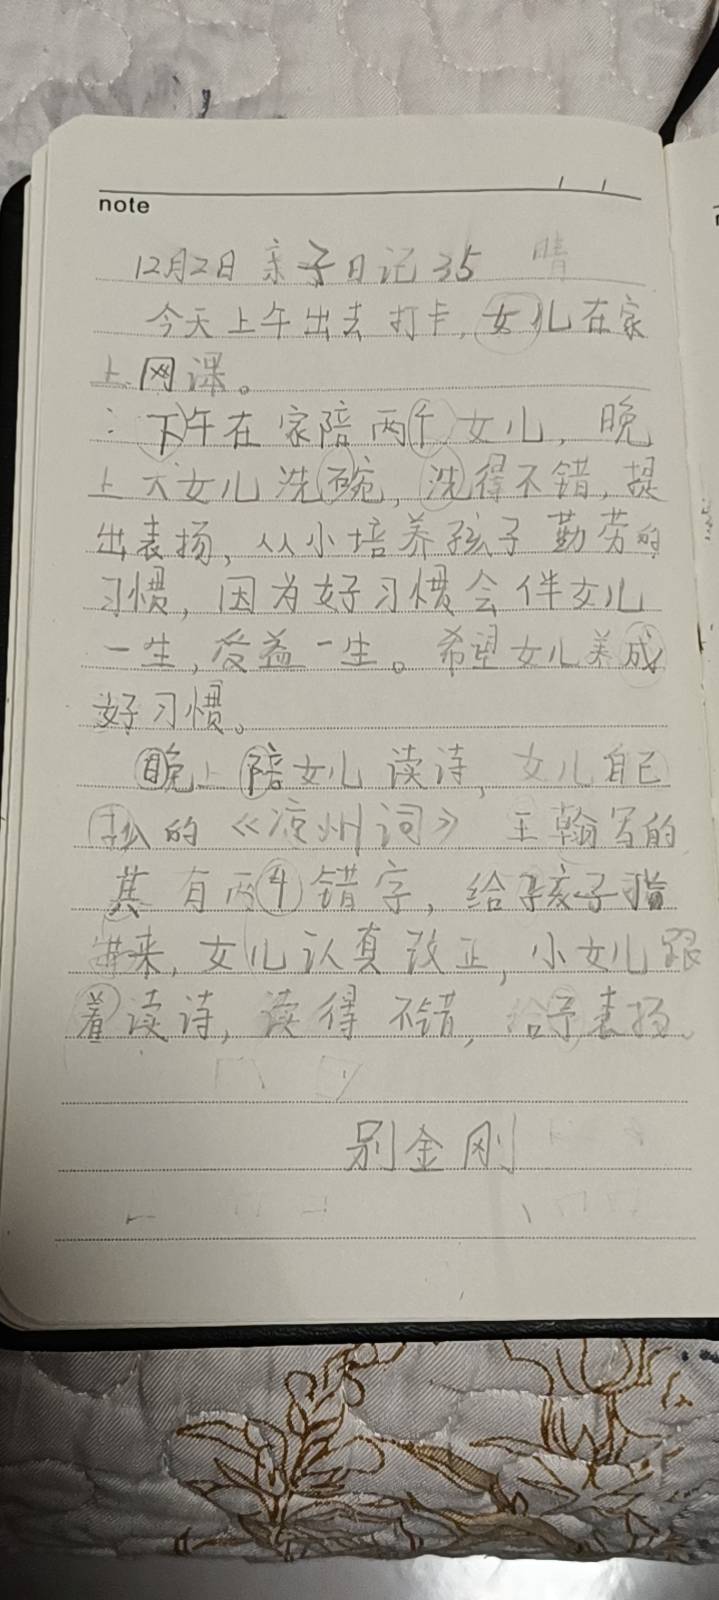 note
12月2日 亲子日记35 晴
今天上午出去打卡,女儿在家
上网课。
下午在家陪两个女儿,晚
上大女儿洗碗,洗得不错,提
出表扬,从小培养孩子勤劳的
习惯,因为好习惯会伴女儿
一生,受益一生。希望女儿养成
好习惯。
晚上陪女儿读诗,女儿自己
抓的《凉州词》王翰写的
其有两个错字,给孩子指
来,女儿认真改正,小女儿跟
着读诗,读得不错,给予表扬。
别金刚